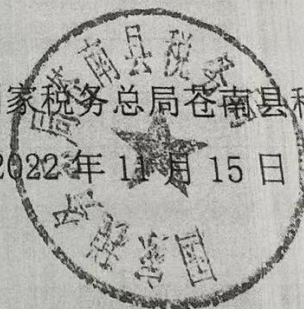 家税务总局苍南县税
2022年11月15日
国家税务总局苍南县税务局